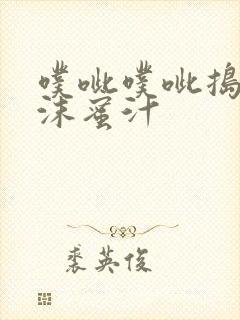 噗呲噗呲捣
沫蜜汁
裘英俊